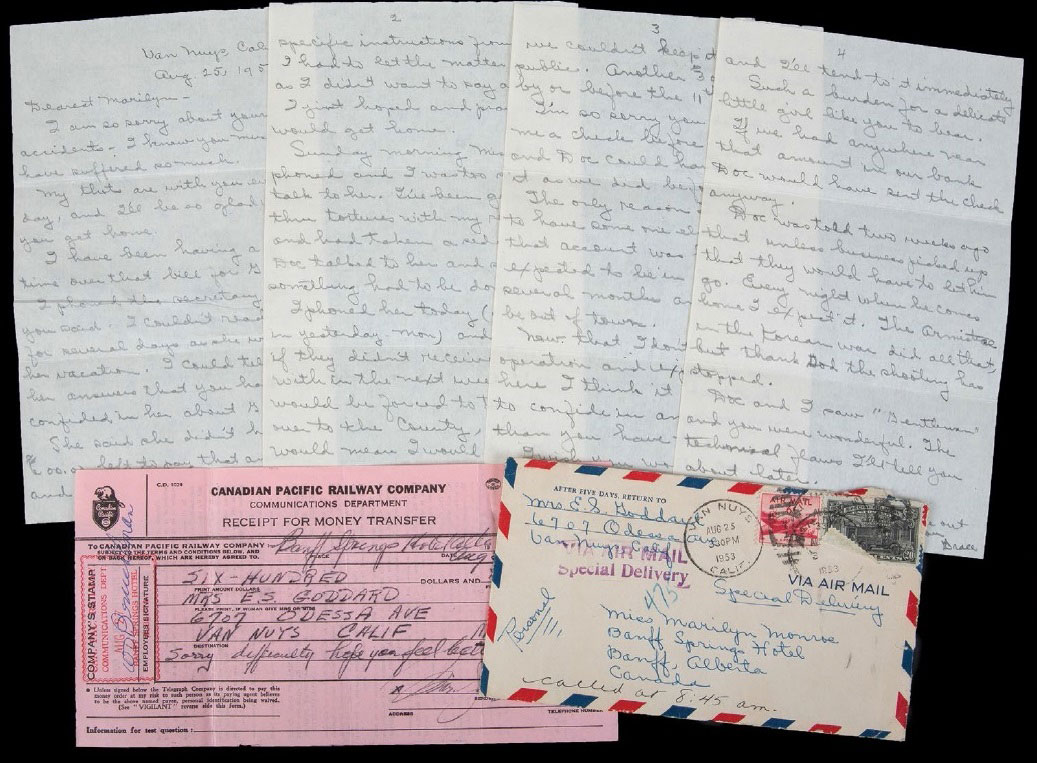 Van Nuys, Cal
Aug. 25, 195
Dearest Marilyn -
I am so sorry about your
accidents - I know you mus
have suffered so much.
My thots are with you e
day, and I'll be so glad
you get home.
I have been having a
time over that bill for G
I phoned the secretary
you said. I couldn't rea
for several days as she w
her vacation. I could tel
her answers that you ha
confided in her about G
She said she didn't h
left to pay that a
and
2
specific instructions from
I had to let the matter
as I didn't want to say a
I just hoped and pra
would get home.
Sunday morning Mrs
phoned and I was too
talk to her. I've been g
thru tortures with my
and had taken a sed
Doc talked to her and s
something had to be do
I phoned her today (
in yesterday Mon) and
if they didn't receive
within the next wee
would be forced to t
over to the County,
would mean I would
3
we couldn't keep
public. Another 30
by or before the 11th
I'm so sorry you
me a check before
and Doc could ha
as we did bef
The only reason
to have some one el
that account was
expected to be in
several months a
be out of town.
Now that I don't
operation and exp
here I think it
to confide in an
than you have
4
and I'll tend to it immediately
Such a burden for a delicate
little girl like you to bear.
If we had anywhere near
that amount in our bank
Doc would have sent the check
anyway.
Doc was told two weeks ago
that unless business picked up
that they would have to let him
go. Every night when he comes
home I expect it. The Armistice
in the Korean war did all that,
but thank God the shooting has
stopped.
Doc and I saw "Gentlemen"
and you were wonderful. The
technical flaws I'll tell you
about later.
out
Grace
C.D. 6029
Canadian Pacific
CANADIAN PACIFIC RAILWAY COMPANY
COMMUNICATIONS DEPARTMENT
RECEIPT FOR MONEY TRANSFER
TO CANADIAN PACIFIC RAILWAY COMPANY
Banff Springs Hotel
PLACE
DATE Aug
SUBJECT TO THE TERMS AND CONDITIONS BELOW, AND
ON BACK HEREOF, WHICH ARE HEREBY AGREED TO.
SIX-HUNDRED DOLLARS AND
PRINT AMOUNT DOLLARS
MRS E.S. GODDARD
6707 ODESSA AVE
VAN NUYS CALIF
DESTINATION
Sorry difficulty hope you feel bett
COMPANY'S STAMP
COMMUNICATIONS DEPT
AUG
BANFF SPRINGS HOTEL
EMPLOYEES SIGNATURE
Unless signed below the Telegraph Company is directed to pay this
money order at my risk to such person as its paying agent believes
to be the above named payee, personal identification being waived.
(See "VIGILANT" reverse side this form.)
ADDRESS
TELEPHONE NUMBER
Information for test question:
AFTER FIVE DAYS, RETURN TO
Mrs E.S. Goddard
6707 Odessa Ave
Van Nuys, Calif.
VIA AIR MAIL
Special Delivery
VAN NUYS
AUG 25
3:30PM
1953
CALIF.
AIR MAIL
6¢
20
1953
VIA AIR MAIL
Special Delivery
Personal
Miss Marilyn Monroe
Banff Springs Hotel
Banff, Alberta
Canada
called at 8:45 am.